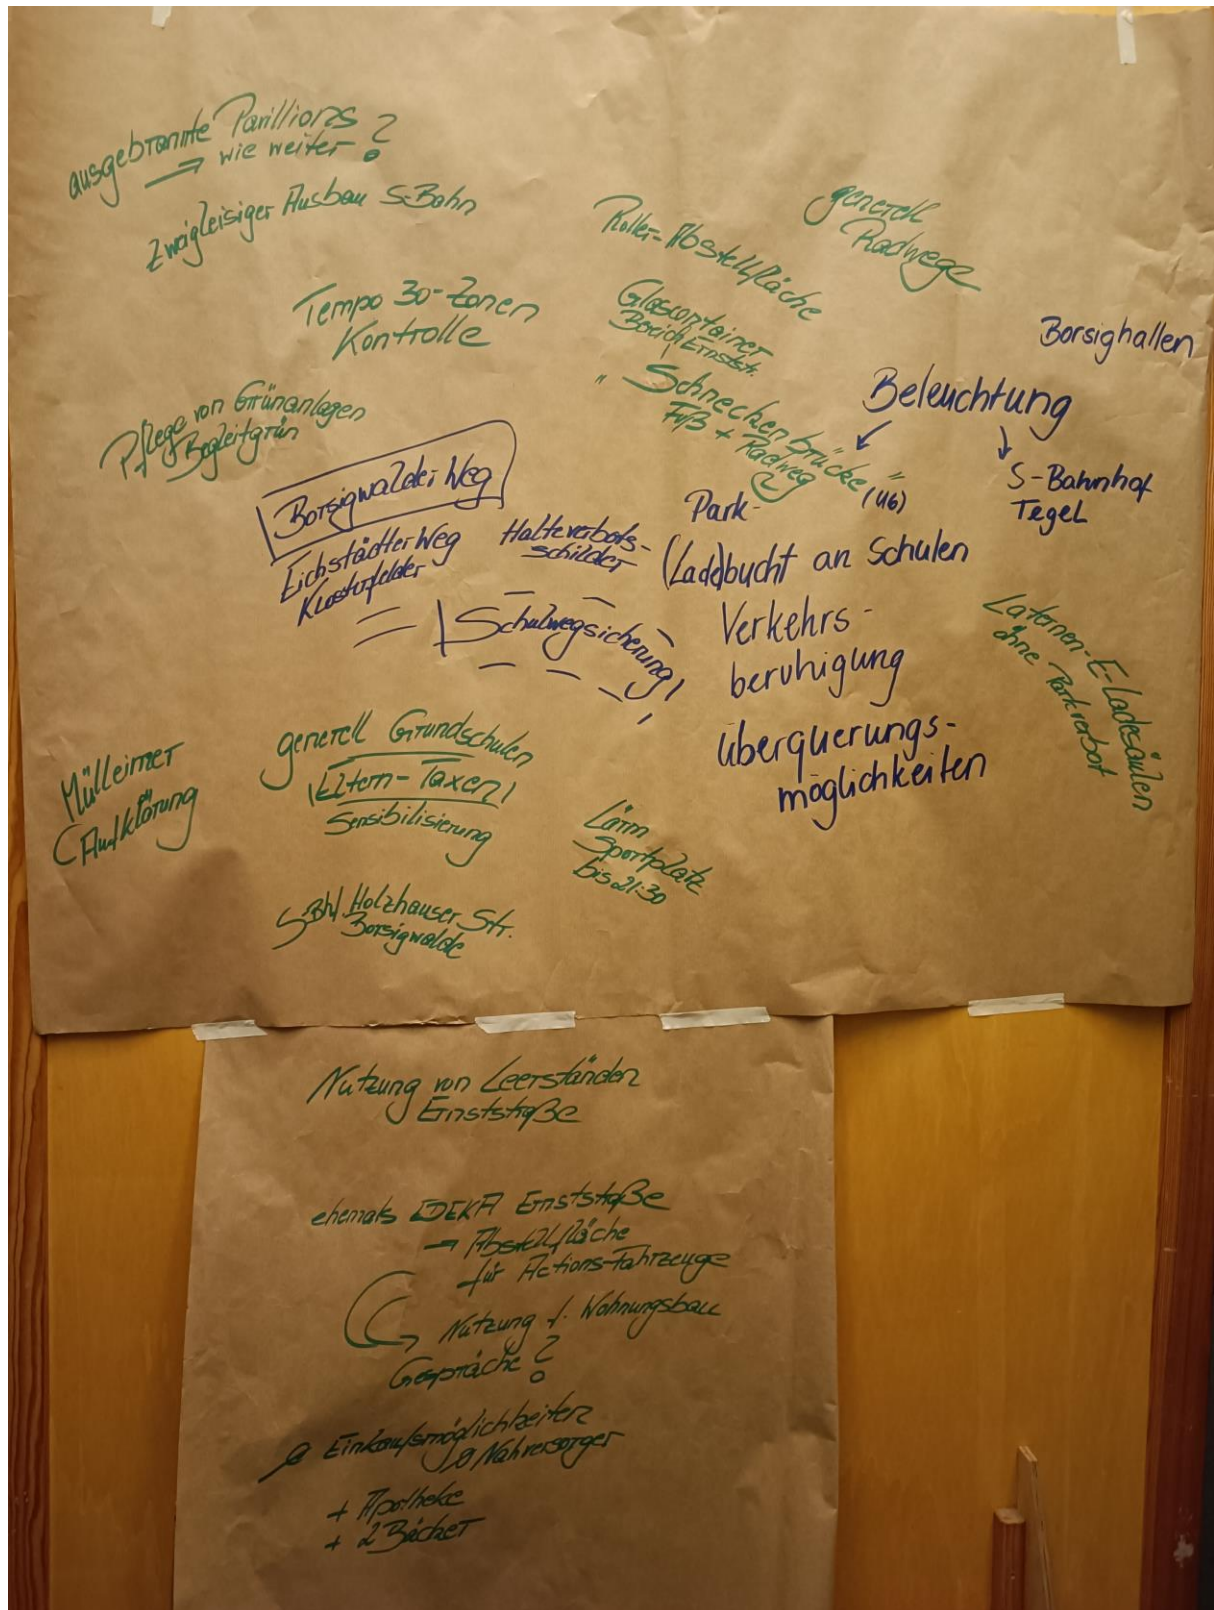 ausgebrannte Pavillions
→ wie weiter?
zweigleisiger Ausbau S-Bahn
Roller-Abstellfläche
generell
Radwege
Tempo 30-Zonen
Kontrolle
Glascontainer
Bereich Ernststr.
Borsighallen
Beleuchtung
"Schneckenbrücke"
(U6)
Fuß + Radweg
S-Bahnhof
Tegel
Pflege von Grünanlagen
+ Begleitgrün
Borsigwalder Weg
Eichstädter Weg
Klosterfelder
Halteverbots-
schilder
Park-
(Lade)bucht an Schulen
Schulwegsicherung
Verkehrs-
beruhigung
Laternen-E-Ladesäulen
ohne Parkverbot
überquerungs-
möglichkeiten
generell Grundschulen
Eltern-Taxen
Sensibilisierung
Mülleimer
Aufklärung
Lärm
Sportplatz
bis 21:30
S-Bhf Holzhauser Str.
Borsigwalde
Nutzung von Leerständen
Ernststraße
ehemals EDEKA Ernststraße
→ Abstellfläche
für Actions-Fahrzeuge
→ Nutzung f. Wohnungsbau
Gespräche?
Einkaufsmöglichkeiten
Nahversorger
+ Apotheke
+ 2 Bäcker